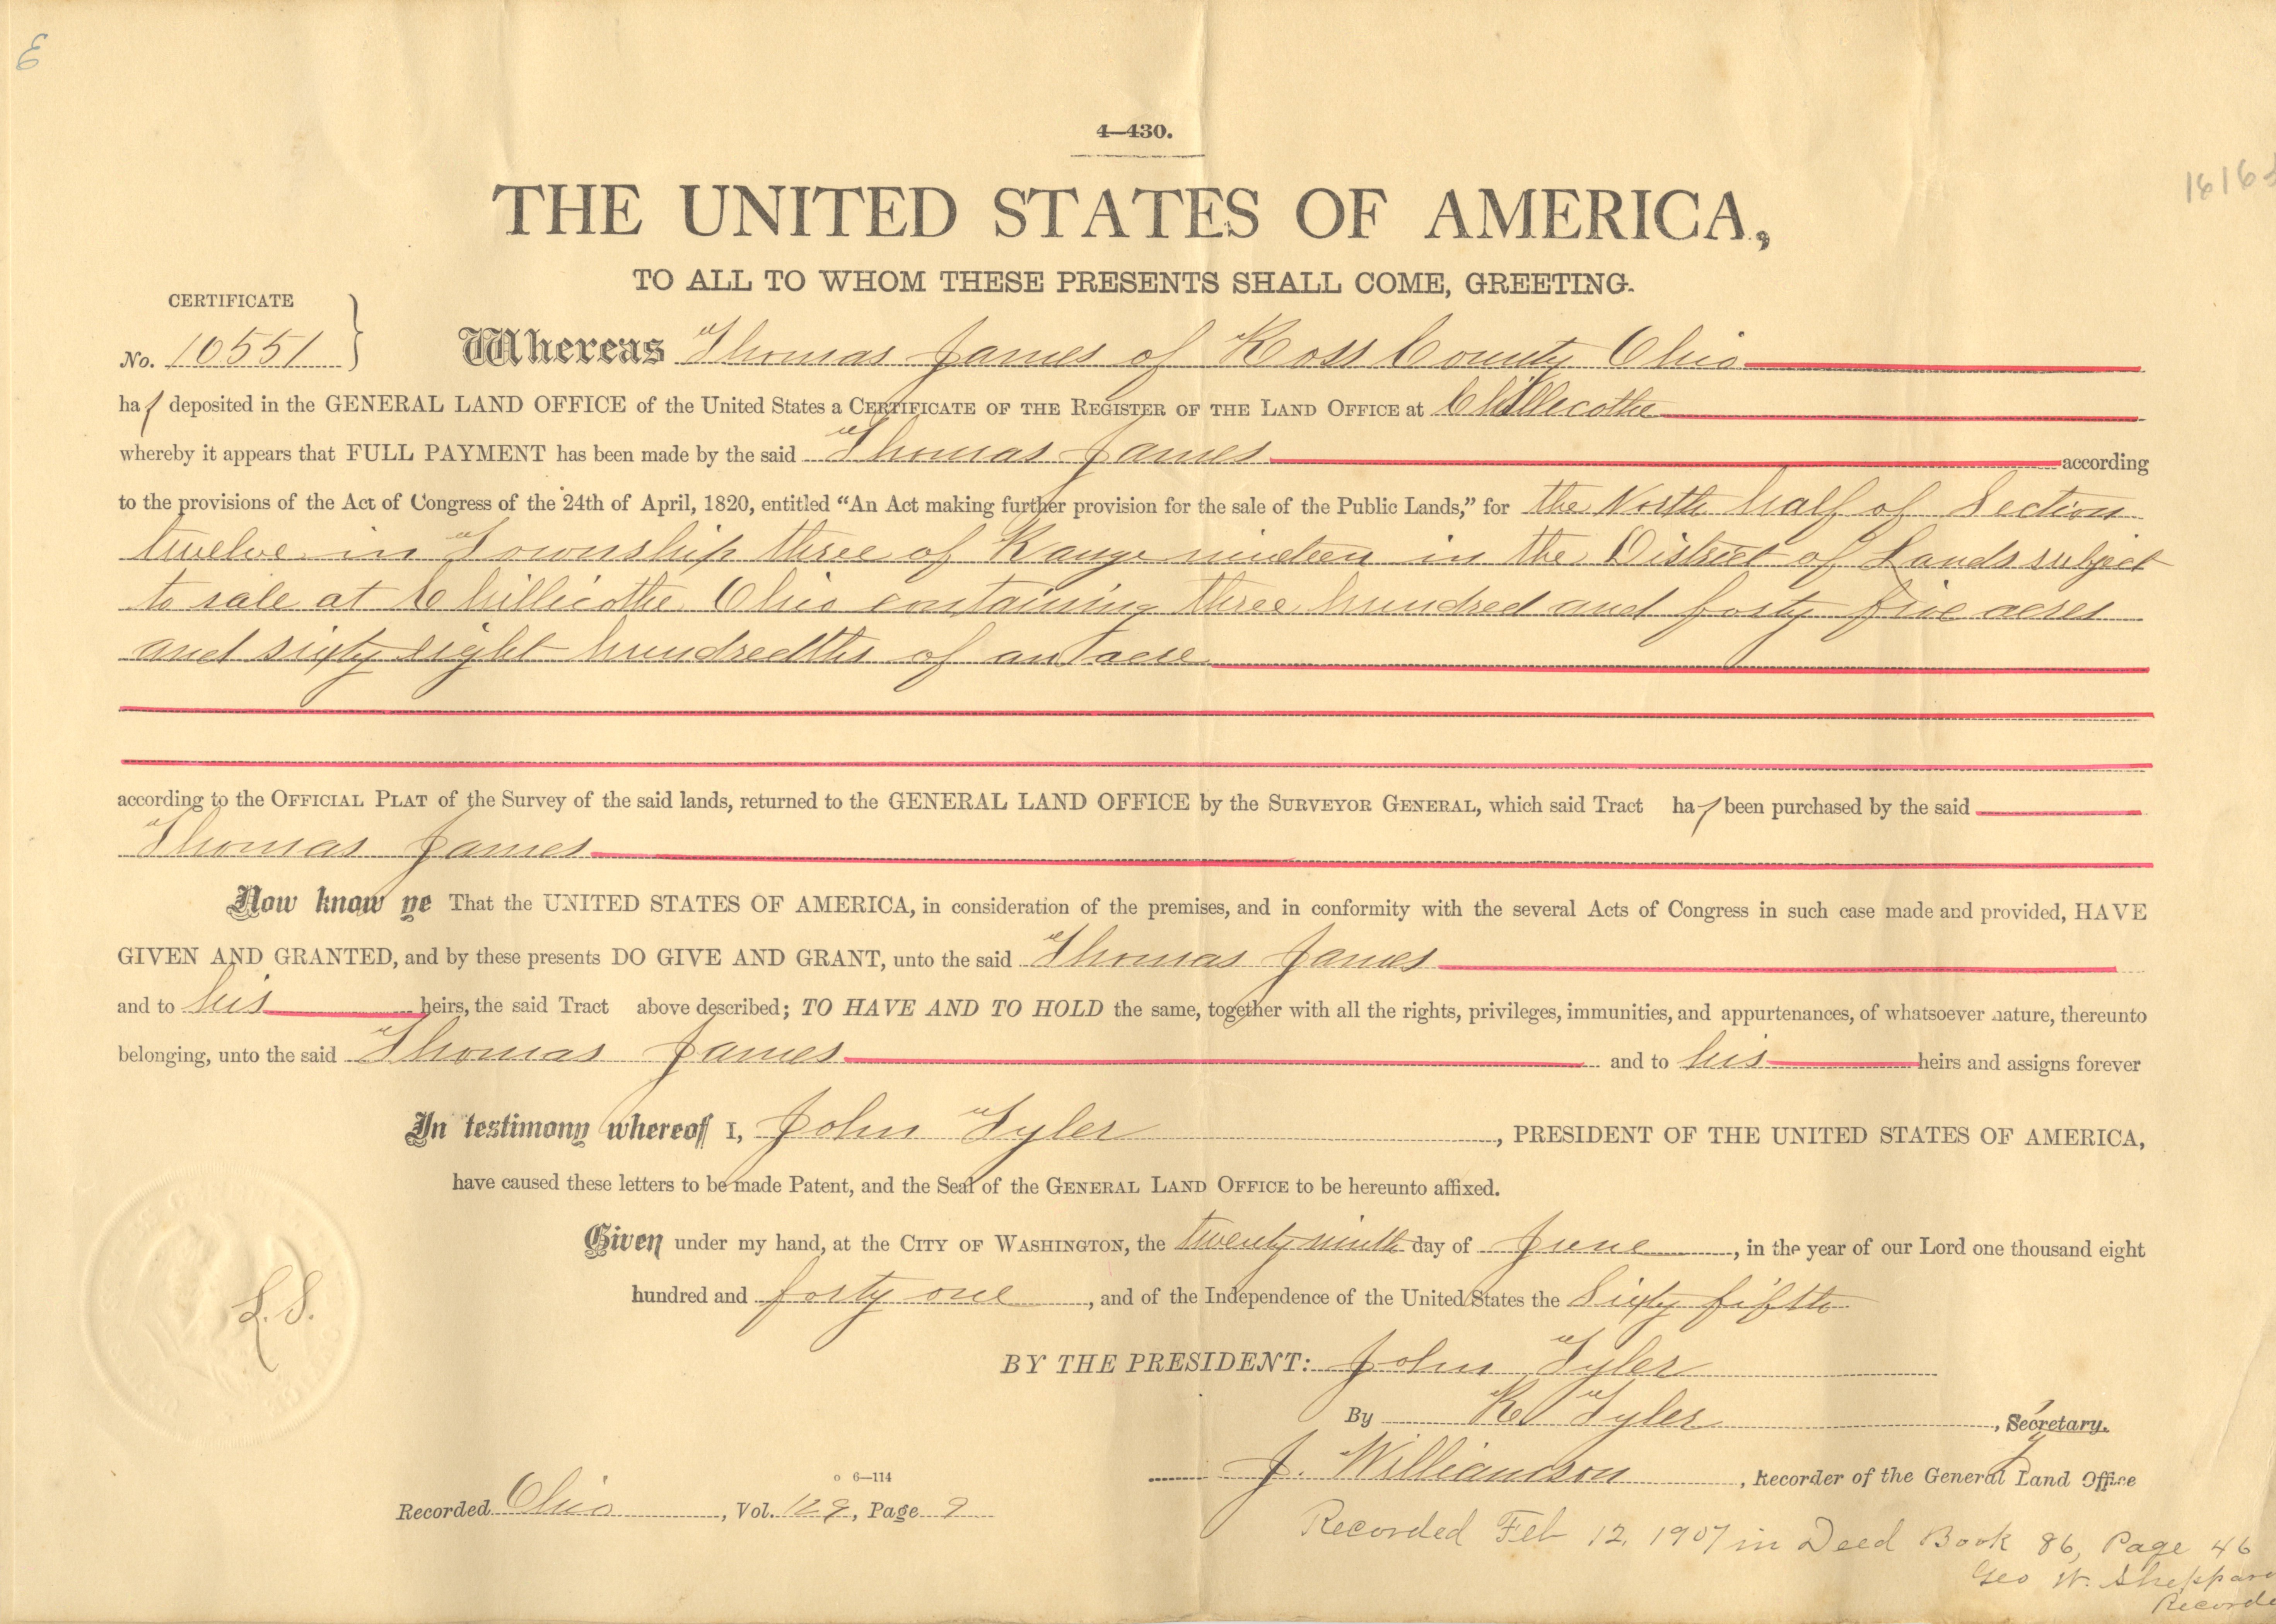 4—430.
THE UNITED STATES OF AMERICA,
TO ALL TO WHOM THESE PRESENTS SHALL COME, GREETING.
CERTIFICATE
No. 10551
Whereas Thomas James of Ross County Ohio
has deposited in the GENERAL LAND OFFICE of the United States a CERTIFICATE OF THE REGISTER OF THE LAND OFFICE at Chillicothe
whereby it appears that FULL PAYMENT has been made by the said Thomas James according
to the provisions of the Act of Congress of the 24th of April, 1820, entitled “An Act making further provision for the sale of the Public Lands,” for the North half of Section
twelve in Township three of Range nineteen in the District of Lands subject
to sale at Chillicothe Ohio containing three hundred and forty five acres
and sixty eight hundredths of an acre
according to the OFFICIAL PLAT of the Survey of the said lands, returned to the GENERAL LAND OFFICE by the SURVEYOR GENERAL, which said Tract has been purchased by the said
Thomas James
Now know ye That the UNITED STATES OF AMERICA, in consideration of the premises, and in conformity with the several Acts of Congress in such case made and provided, HAVE
GIVEN AND GRANTED, and by these presents DO GIVE AND GRANT, unto the said Thomas James
and to his heirs, the said Tract above described; TO HAVE AND TO HOLD the same, together with all the rights, privileges, immunities, and appurtenances, of whatsoever nature, thereunto
belonging, unto the said Thomas James and to his heirs and assigns forever
In testimony whereof I, John Tyler, PRESIDENT OF THE UNITED STATES OF AMERICA,
have caused these letters to be made Patent, and the Seal of the GENERAL LAND OFFICE to be hereunto affixed.
Given under my hand, at the CITY OF WASHINGTON, the twenty ninth day of June, in the year of our Lord one thousand eight
hundred and forty one, and of the Independence of the United States the Sixty fifth
L.S.
BY THE PRESIDENT: John Tyler
By R Tyler, Secretary.
J. Williamson, Recorder of the General Land Office
6—114
Recorded Ohio, Vol. 129, Page 9
Recorded Feb 12, 1907 in Deed Book 86, Page 46
Geo W.